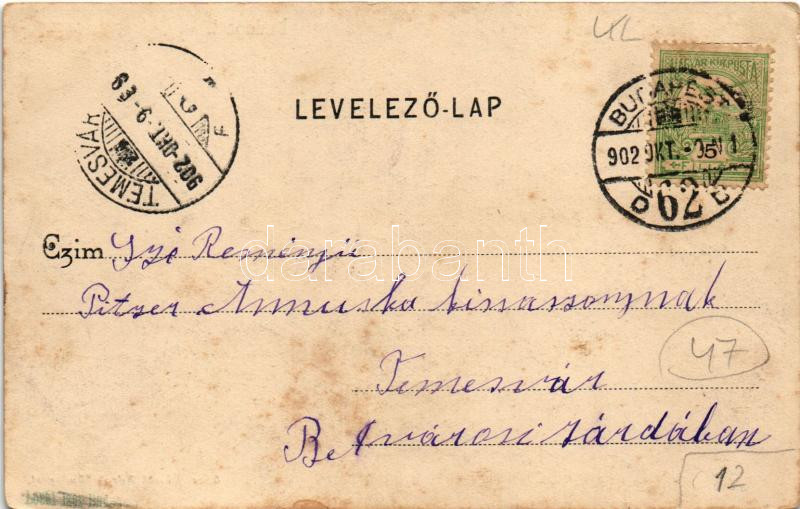 UL
MAGYAR KIR. POSTA
BUDAPEST
902 OKT.
62
TEMESVÁR
902-OKT.-9-É9
LEVELEZŐ-LAP
Czim Jgő Reményü
Pitzer Annuska kisasszonynak
47
Temesvár
Belvárosi zárdában
12
darabanth